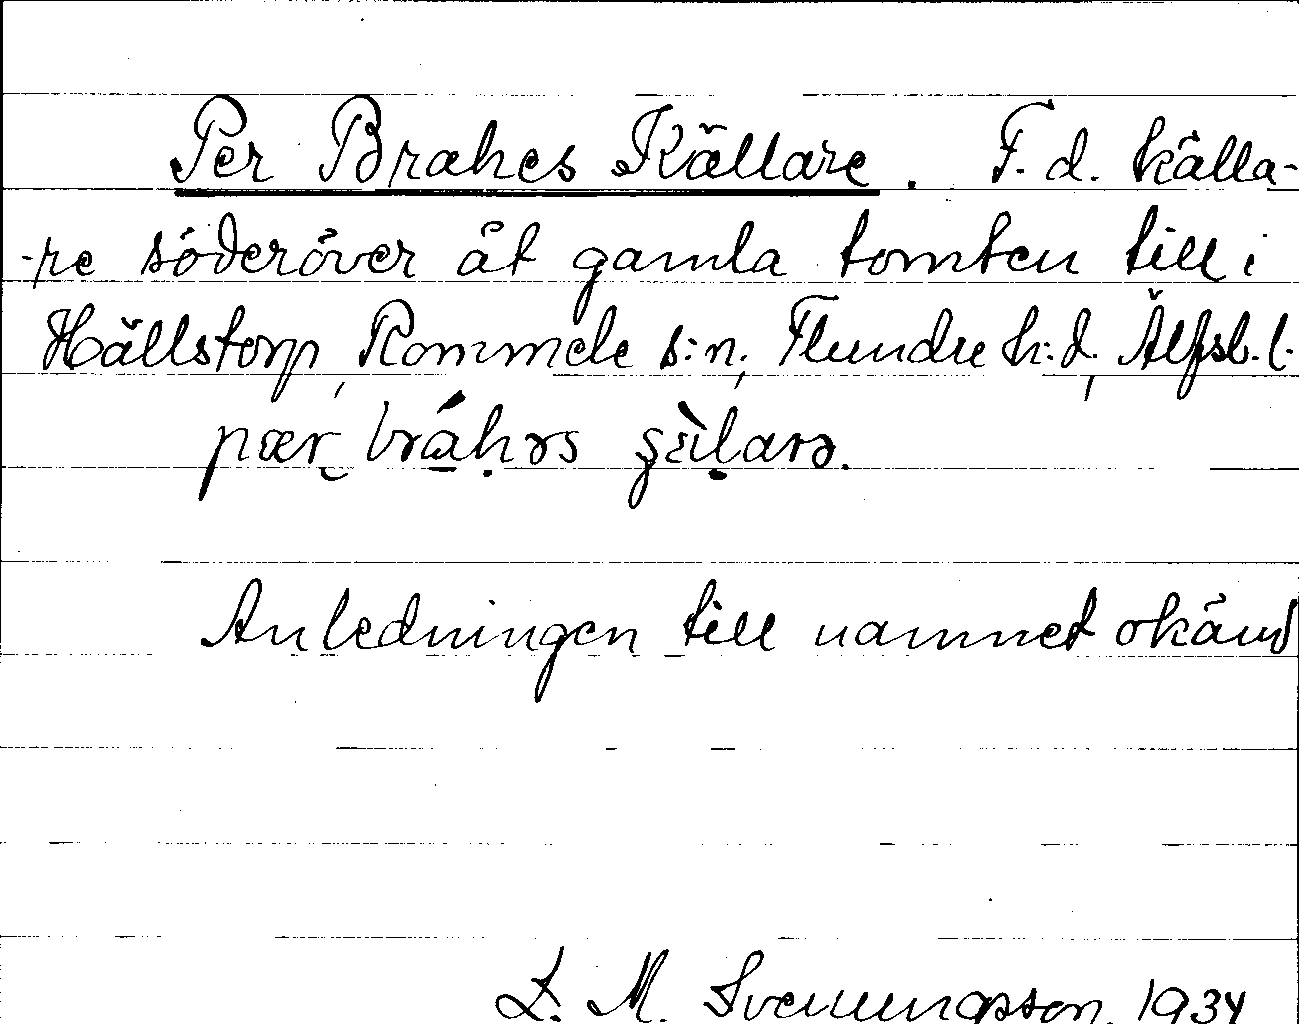 Per Brahes Källare. F.d. källa-
-re söderöver åt gamla tomten till i
Hällstorp, Rommele s:n, Flundre h:d, Älfsb. l.
Anledningen till namnet okänd
L. M. Svenungsson 1934